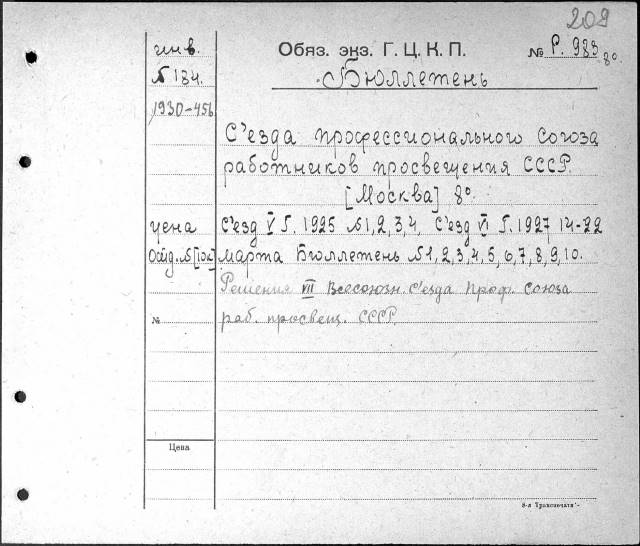 209
инв. Обяз. экз. Г. Ц. К. П. № Р. 983 8°.
№ 134. Бюллетень
1930-456
С'езда профессионального Союза
работников просвещения СССР.
[Москва] 8°.
цена С'езд V Г. 1925 №1,2,3,4. С'езд VI Г. 1927 14-22
Отд. № [10к] марта Бюллетень №1,2,3,4,5,6,7,8,9,10.
Решения VII Всесоюзн. С'езда Проф. Союза
№ раб. просвещ. СССР.
Цена
8-я Транспечати